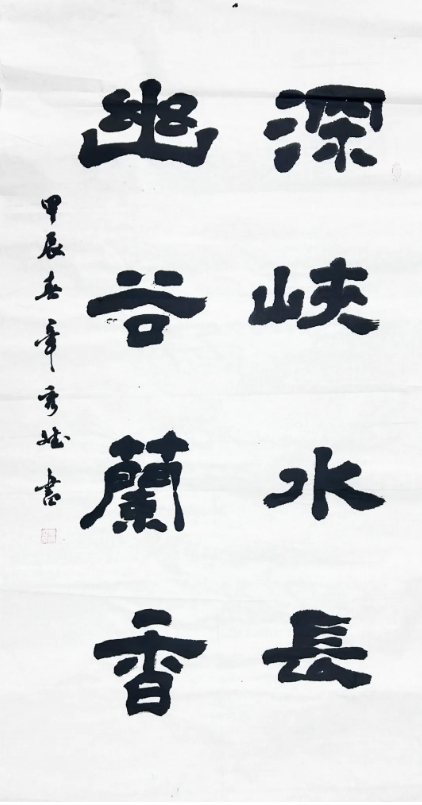 深峡水長
幽谷蘭香
甲辰春章秀斌書